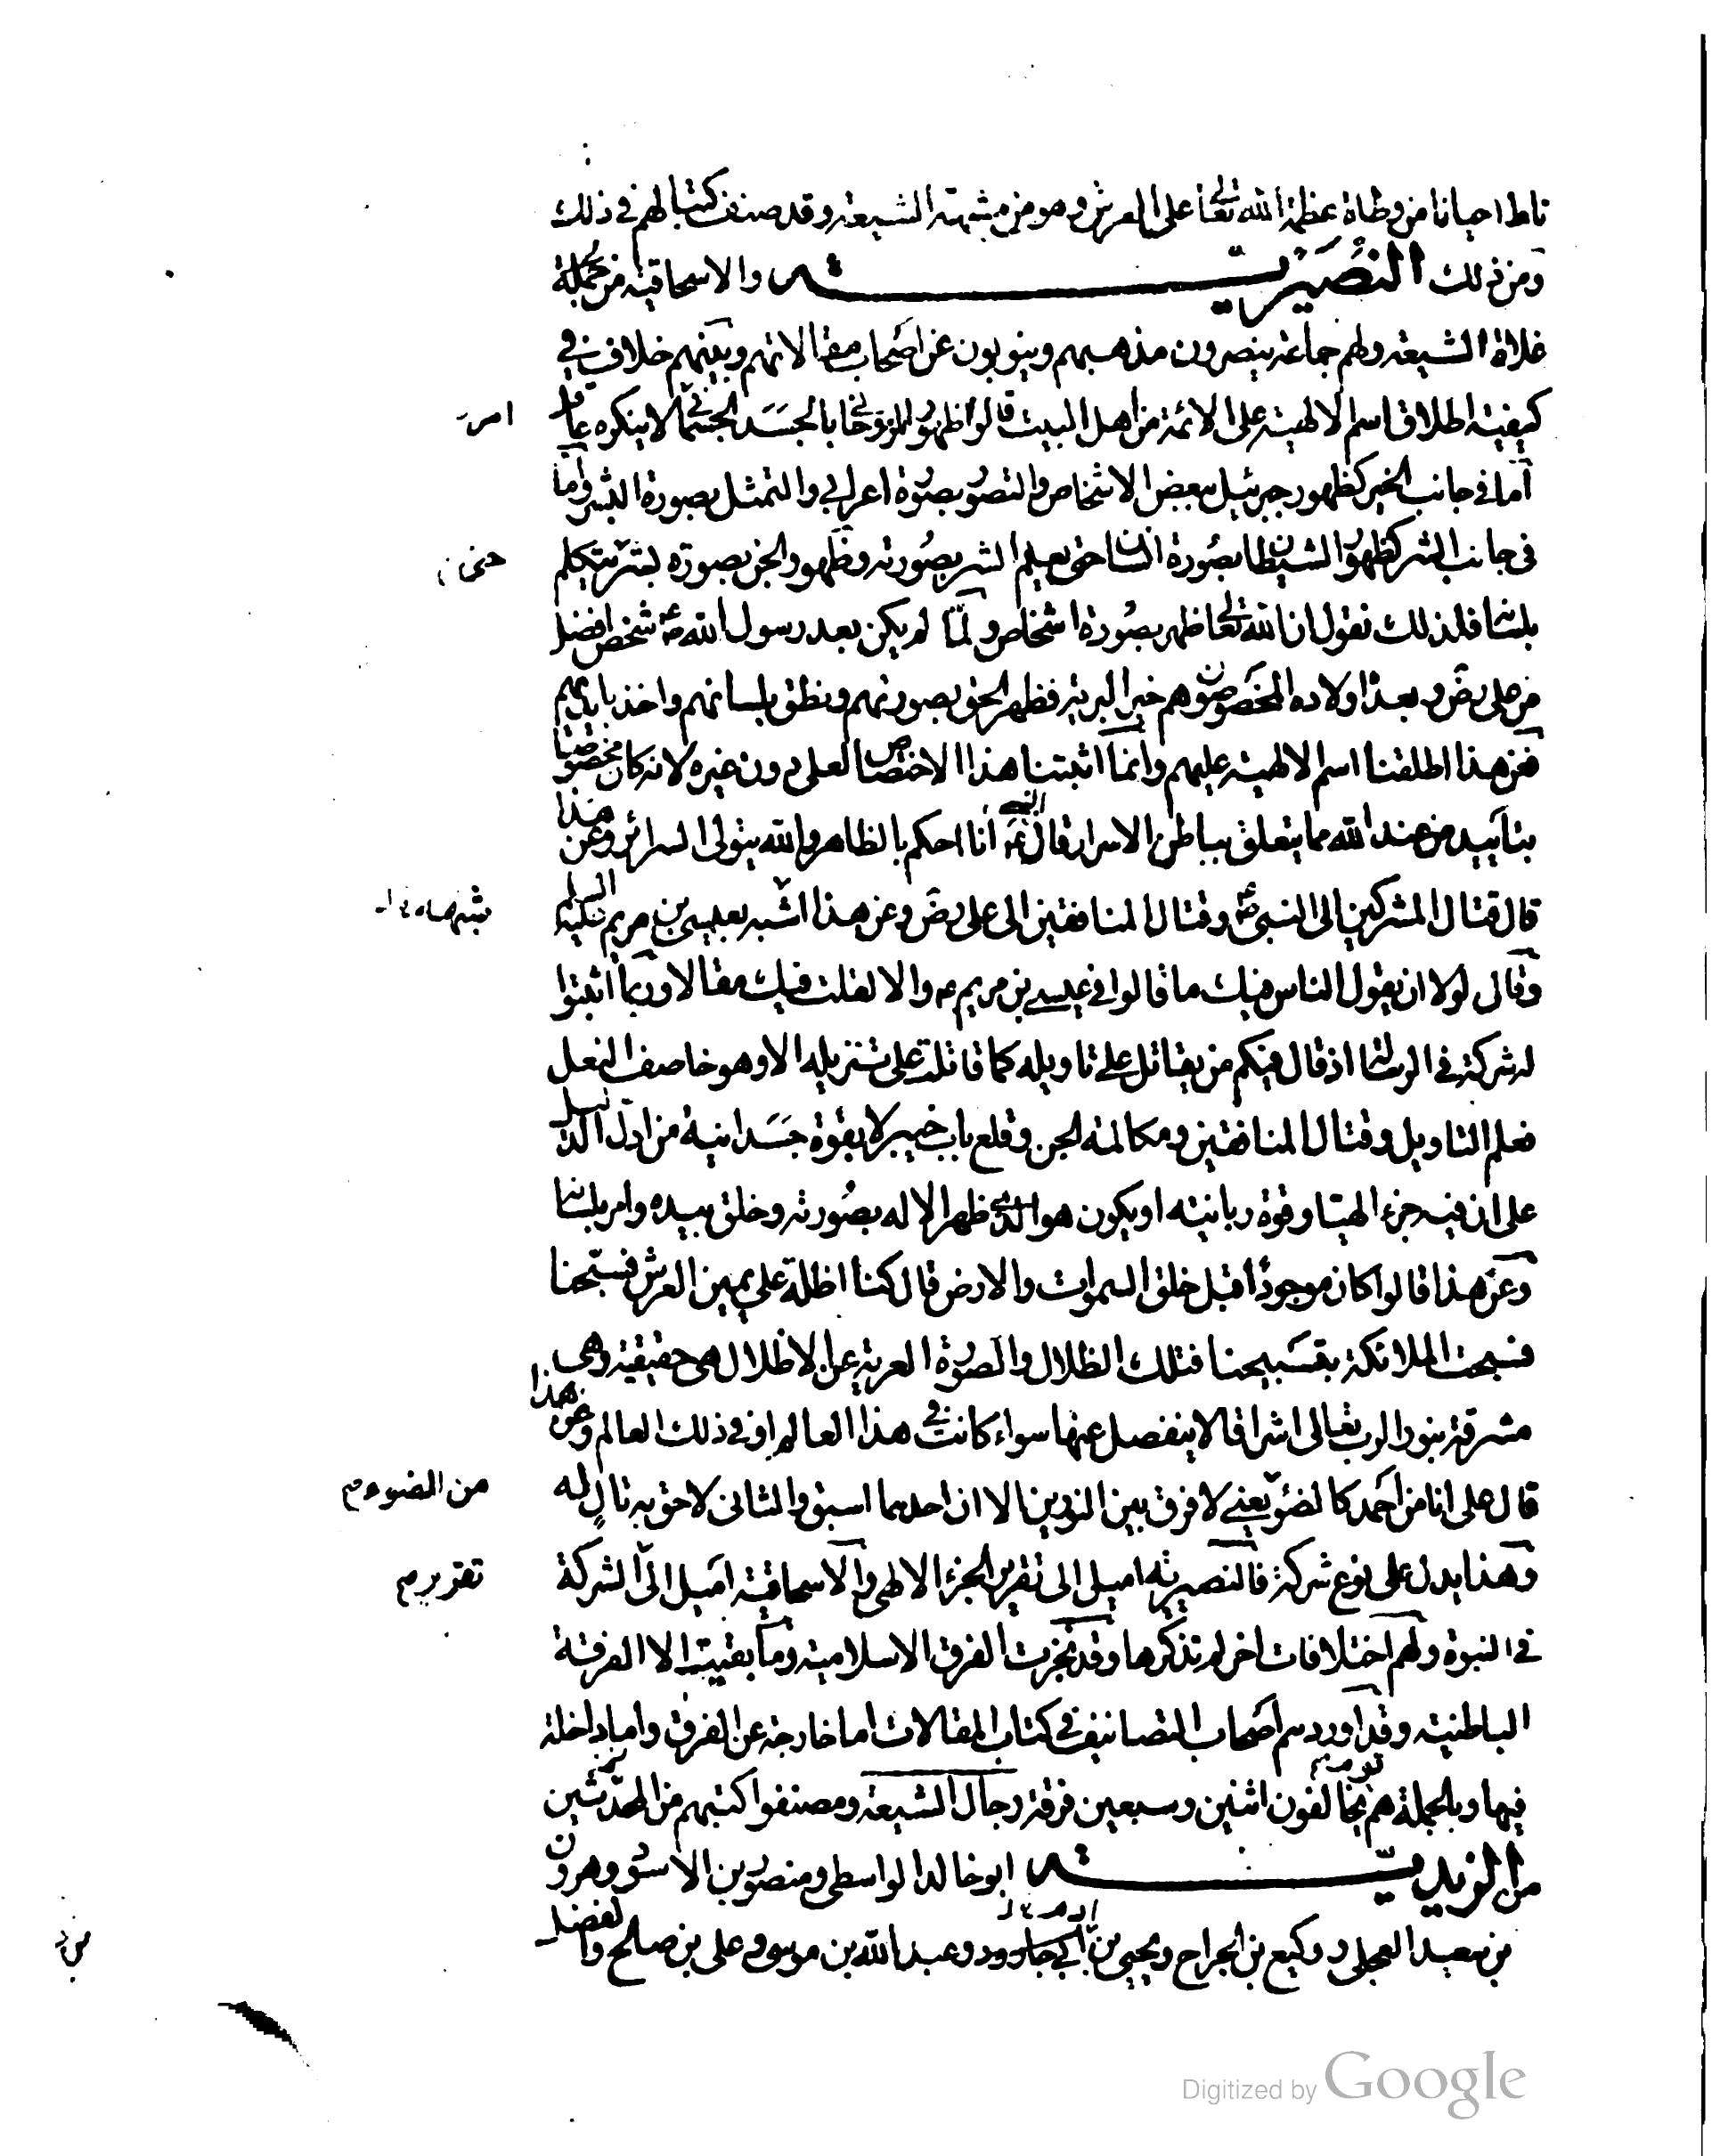 تاط احيانا من وطاة عظمة الله تعالى على العرش وهو من مشبهة الشيعة وقد صنف كتبا لهم في ذلك
ومن ذلك النصيرية والاسحاقية من جملة
غلاة الشيعة ولهم جماعة ينصرون مذهبهم وينوبون عن اصحاب مقالاتهم وبينهم خلاف في
كيفية اطلاق اسم الالهية على الائمة من اهل البيت قالوا ظهور الروحاني بالجسد الجسماني لا ينكره عاقل
امر
اما في جانب الخير كظهور جبرئيل ببعض الاشخاص والتصور بصورة اعرابي والتمثل بصورة البشر واما
في جانب الشر كظهور الشيطان بصورة انسان حتى يعلم الشر بصورته وظهور الجن بصورة بشر يتكلم
بلسانه فلذلك نقول ان الله تعالى ظهر بصورة اشخاص ولما لم يكن بعد رسول الله شخص افضل
من علي رض وبعده اولاده المخصوصون وهم خير البرية فظهر الحق بصورتهم ونطق بلسانهم واخذ بايديهم
فعن هذا اطلقنا اسم الالهية عليهم وانما اثبتنا هذا الاختصاص لعلي دون غيره لانه كان مخصوصا
بتاييد من عند الله مما يتعلق بباطن الاسرار قال النبي انا احكم بالظاهر والله يتولى السرائر وعن هذا
قال قتال المشركين الى النبي وقتال المنافقين الى علي رض وعن هذا اشبه بعيسى بن مريم
وقال لولا ان يقول الناس فيك ما قالوا في عيسى بن مريم والا لقلت فيك مقالا وربما اثبتوا
له شركة في الرسالة اذ قال فيكم من يقاتل على تاويله كما قاتلت على تنزيله الا وهو خاصف النعل
فعلم التاويل وقتال المنافقين ومكالمة الجن وقلع باب خيبر لا بقوة جسدانية من ادل الدليل
على ان فيه جزء الهيا وقوة ربانية او يكون هو الذي ظهر الاله بصورته وخلق بيده وامر بلسانه
وعن هذا قالوا كان موجودا قبل خلق السموات والارض قال كنا اظلة على يمين العرش فسبحنا
فسبحت الملائكة بتسبيحنا فتلك الظلال والصورة العرية عن الاظلال هي حقيقية وهي
مشرقة بنور الرب تعالى اشراقا لا ينفصل عنها سواء كانت في هذا العالم او في ذلك العالم وعن هذا
قال علي انا من احمد كالضوء يعني لا فرق بين النورين الا ان احدهما اسبق والثاني لاحق به تال له
من الضوء م
وهذا يدل على نوع شركة فالنصيرية اميل الى تقرير الجزء الالهي والاسحاقية اميل الى الشركة
تقرير م
في النبوة ولهم اختلافات اخر لم نذكرها وقد نجزت الفرق الاسلامية وما بقيت الا الفرقة
الباطنية وقد اوردهم اصحاب التصانيف في كتاب المقالات اما خارجة عن الفرق واما داخلة
فيها وبالجملة هم يخالفون اثنين وسبعين فرقة رجال الشيعة ومصنفوا كتبهم من المحدثين
من الزيدية ابو خالد الواسطي ومنصور بن الاسود وهرون
بن سعيد العجلي ووكيع بن الجراح ويحيى بن وعبد الله بن موسى وعلي بن صلح والفضل